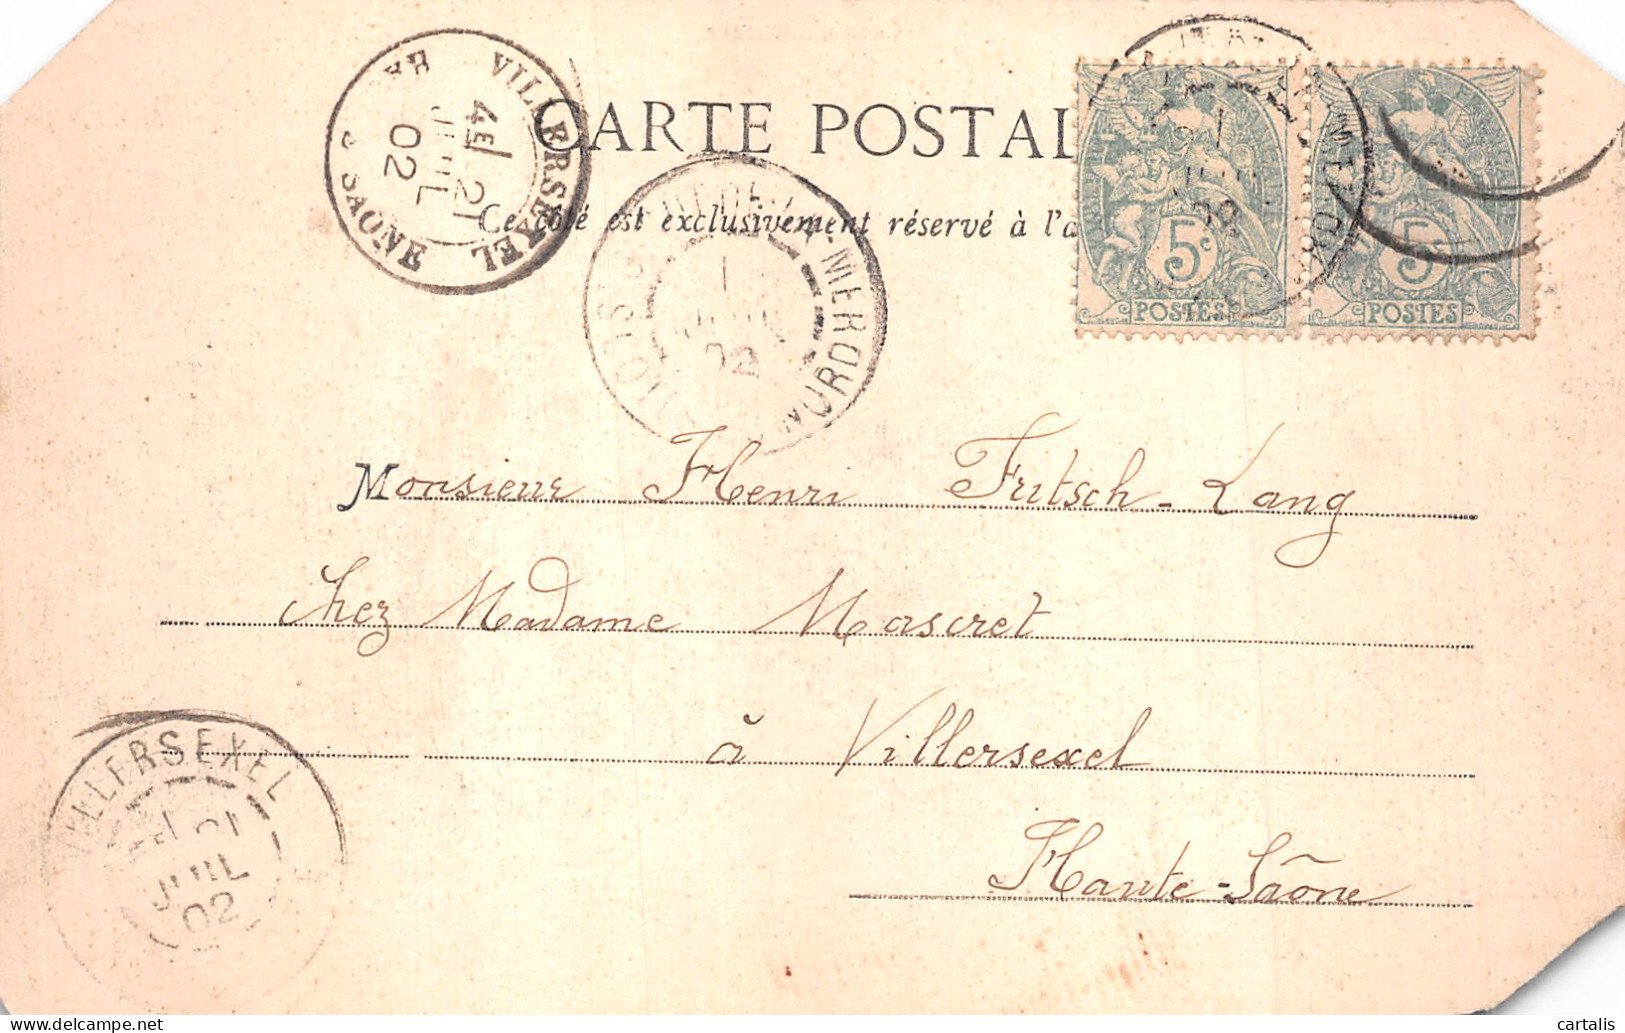 CARTE POSTAL
Ce côté est exclusivement réservé à l'a
VILLERSEXEL
4E 21
JUIL
02
SAONE
NORD
JUIL
02
5c
POSTES
5c
POSTES
Monsieur Henri Fritsch-Lang
chez Madame Mascret
à Villersexel
Haute-Saône
VILLERSEXEL
JUIL
02
cartalis
delcampe.net